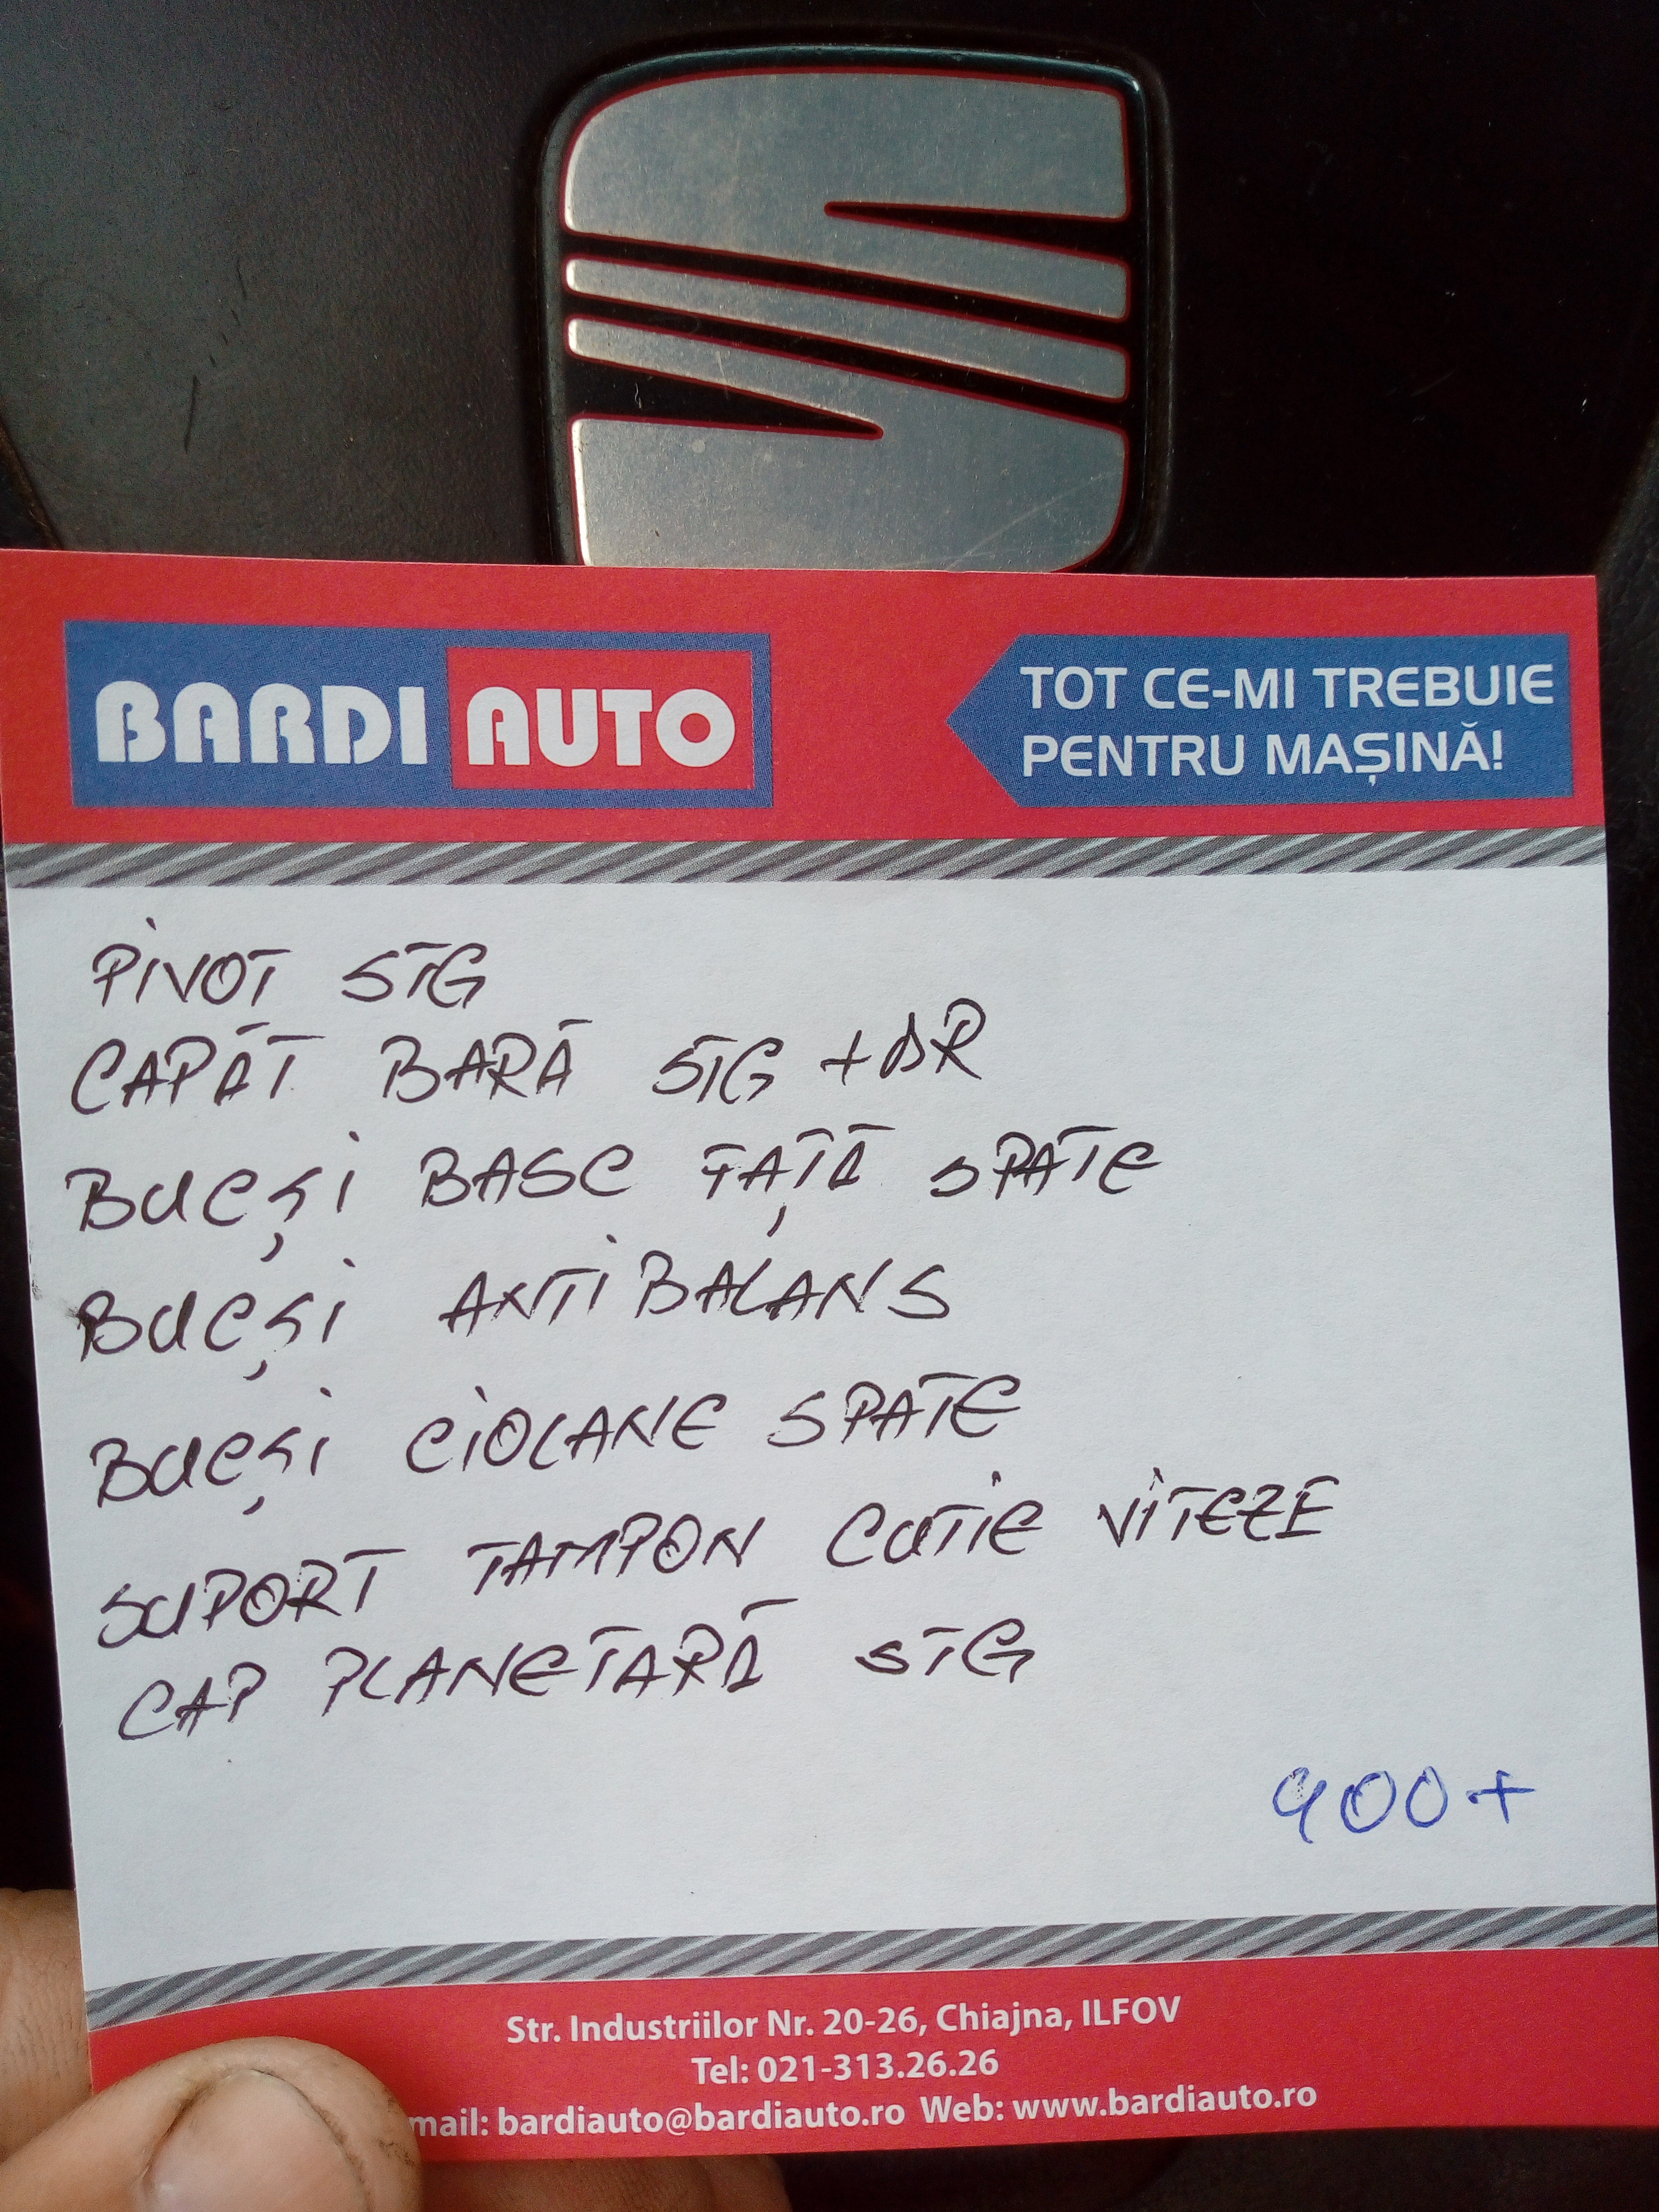 BARDI AUTO
TOT CE-MI TREBUIE
PENTRU MAȘINĂ!
PIVOT STG
CAPĂT BARĂ STG + DR
BUCȘI BASC FAȚĂ SPATE
BUCȘI ANTIBALANS
BUCȘI CIOLANE SPATE
SUPORT TAMPON CUTIE VITEZE
CAP PLANETARĂ STG
900+
Str. Industriilor Nr. 20-26, Chiajna, ILFOV
Tel: 021-313.26.26
mail: bardiauto@bardiauto.ro Web: www.bardiauto.ro